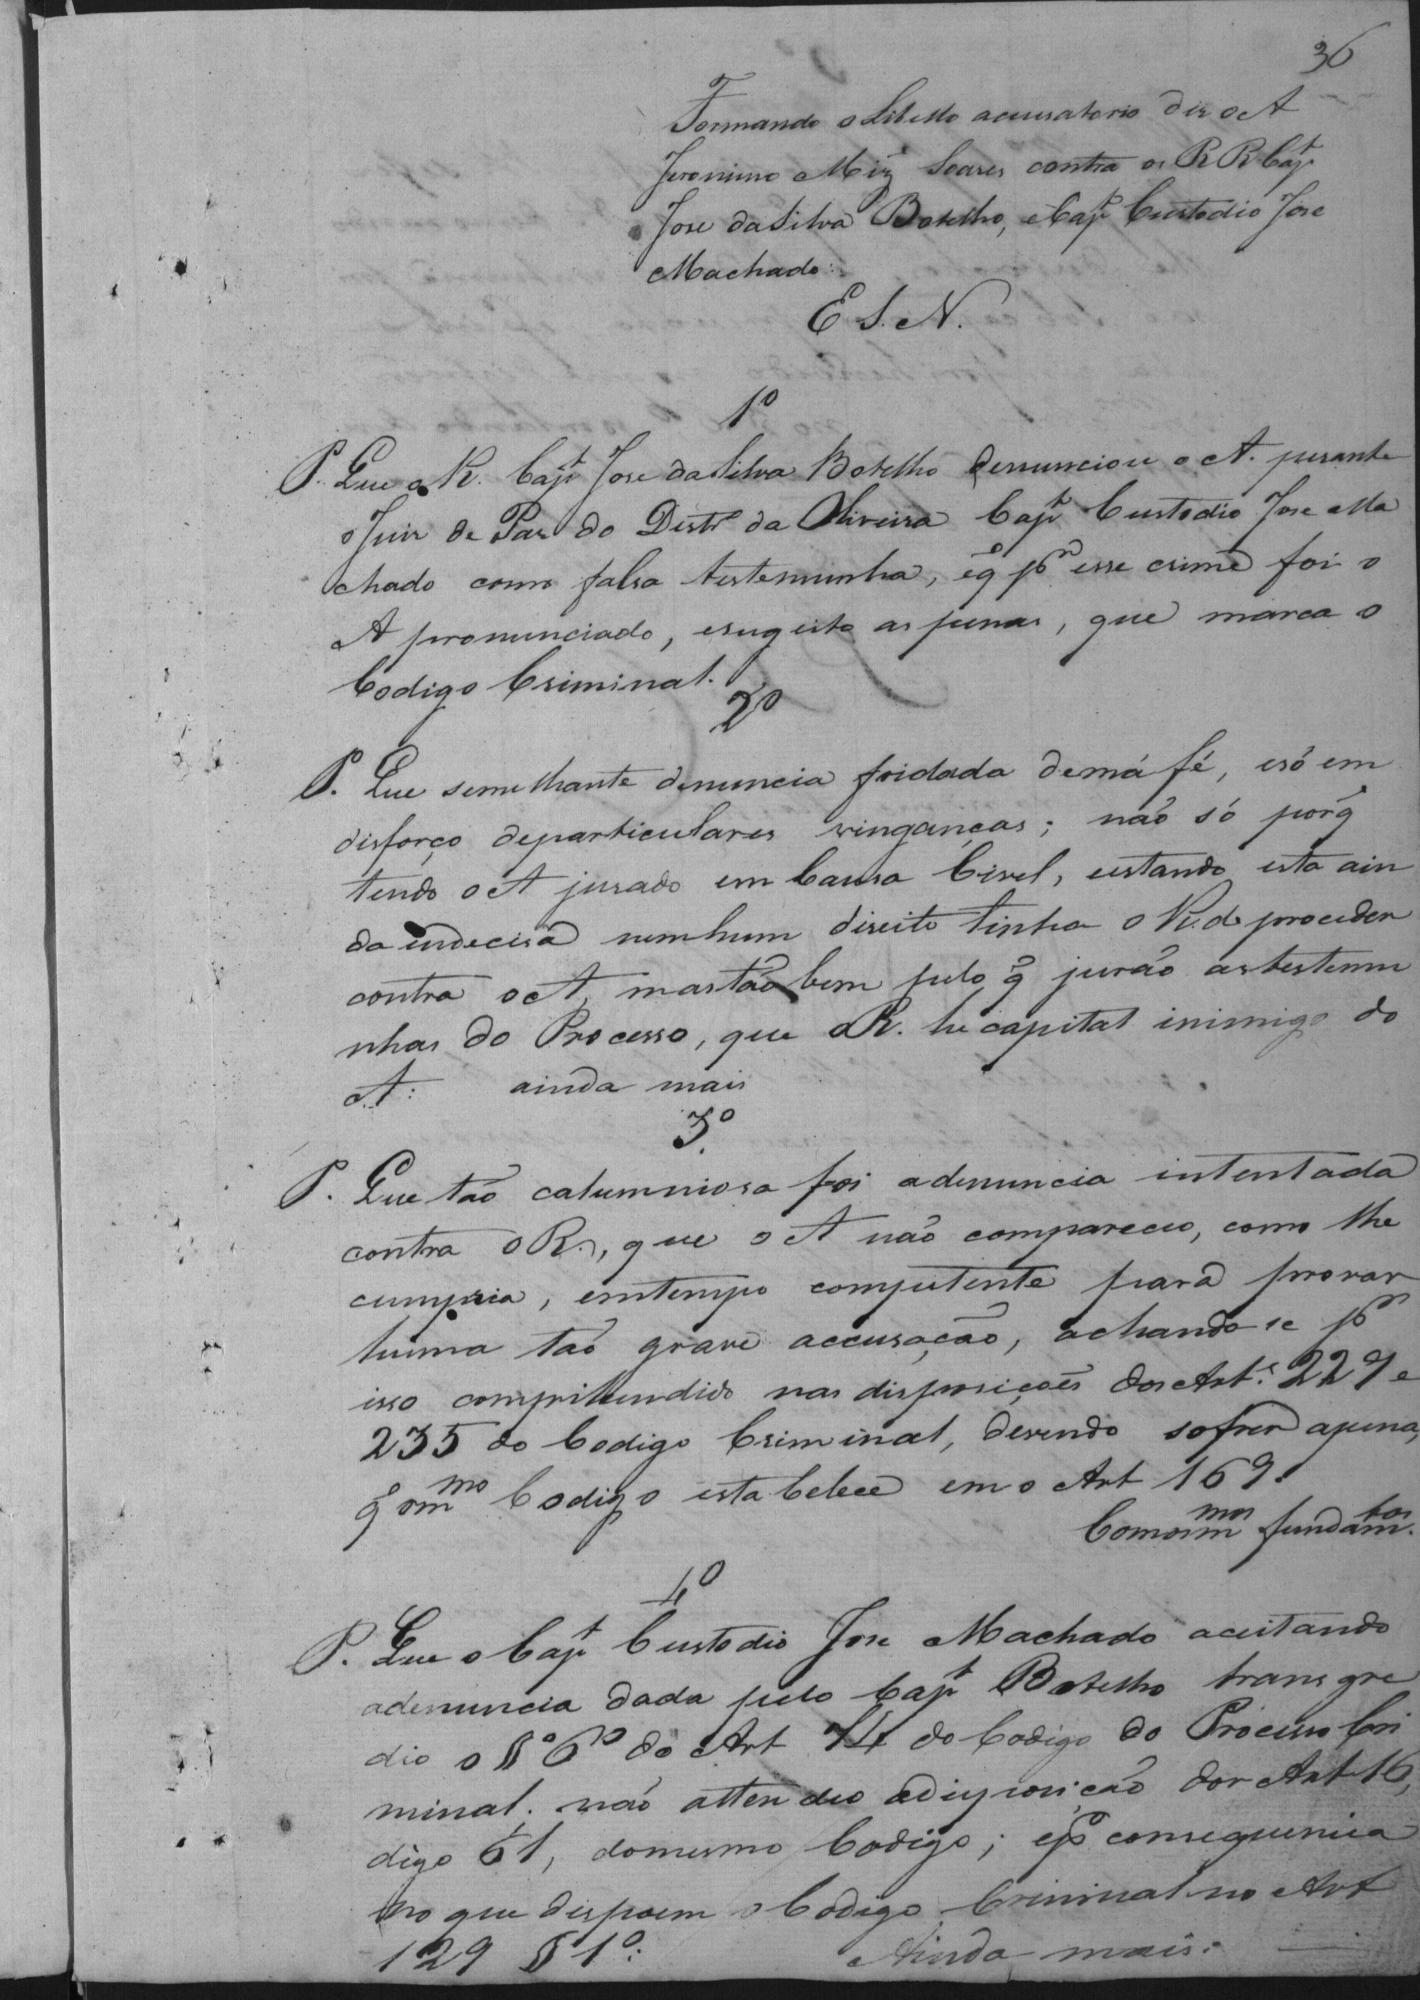 36
Formando o Libello accusatorio diz o A
Jeronimo Miz Soares contra os RR Cap.t
Jose da Silva Botelho, e Cap.t Custodio Jose
Machado:
E S. N.
1º
P. Que o R. Cap.t Jose da Silva Botelho denunciou o A. perante
o Juiz de Paz do Destr.o da Oliveira Cap.t Custodio Jose Ma
chado como falsa testemunha, e q̃ p.r esse crime foi o
A pronunciado, e sugeito as penas, que marca o
Codigo Criminal.
2º
P. Que semelhante denuncia foi dada de má fé, e só em
disforço de particulares vinganças; não só porq̃
tendo o A jurado em Causa Civel, e estando esta ain
da indecisa nenhum direito tinha o R. de proceder
contra o A, mas tão bem pelo q̃ jurão as testemu
nhas do Processo, que o R. he capital inimigo do
A: ainda mais
3º
P. Que tão calumniosa foi a denuncia intentada
contra o R., que o A não compareceo, como lhe
cumpria, em tempo competente para provar
huma tão grave accusação, achando-se p.r
isso comprihendido nas disposições dos Art.s 229 e
235 do Codigo Criminal, devendo sofrer a pena,
q̃ o m.mo Codigo estabelece em o Art 169.
Com os m.mos fundam.tos
4º
P. Que o Cap.t Custodio Jose Machado aceitando
a denuncia dada pelo Cap.t Botelho transgre
dio o § 6º do Art 74 do Codigo do Processo Cri
minal; não attendeo a disposição dos Art 16,
digo 61, do mesmo Codigo; e p.r consequencia
ao que dispoem o Codigo Criminal no Art
129 § 1º: Ainda mais: